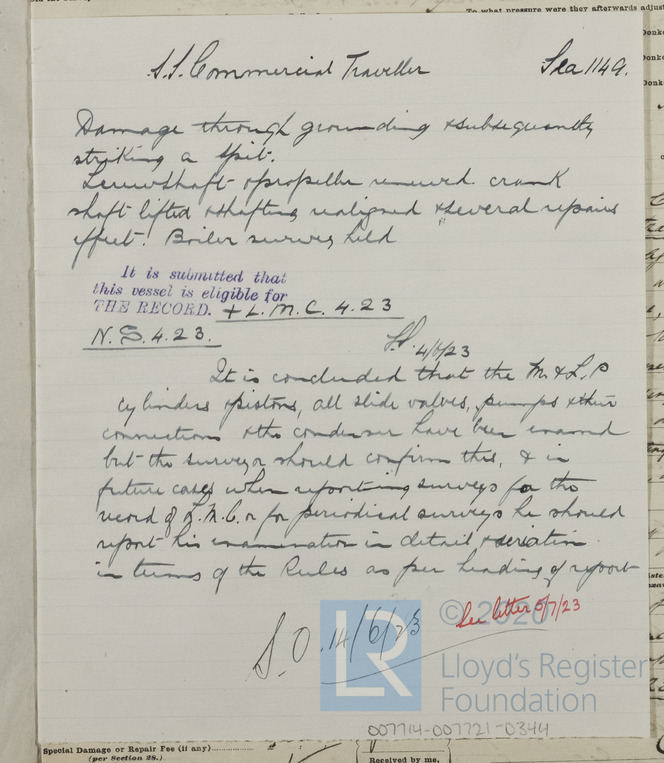 To what pressure were they afterwards adjust
S.S. Commercial Traveller Sea 1149.
Damage through grounding & subsequently
striking a spit.
Screwshaft & propeller renewed. crank
shaft lifted & shafting realigned & several repairs
effect. Boiler survey held
It is submitted that
this vessel is eligible for
THE RECORD. + L.M.C. 4.23
N.S. 4.23.
4/6/23
It is concluded that the M. & L.P
cylinders & pistons, all slide valves, pumps & their
connections & the condenser have been examd
but the surveyor should confirm this, & in
future cases when reporting surveys for the
record of L.M.C. or for periodical surveys he should
report his examination in detail &
in terms of the Rules as per heading of report
S.O. 14/6/23
See letter 5/7/23
LR
© 2020
Lloyd's Register
Foundation
007714-007721-0344
Special Damage or Repair Fee (if any)
(per Section 28.)
Received by me,